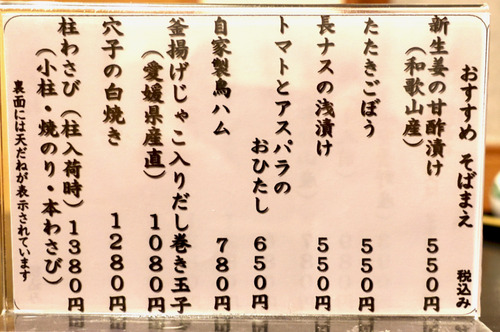 おすすめ そばまえ 税込み
新生姜の甘酢漬け
（和歌山産） 550円
たたきごぼう 550円
長ナスの浅漬け 550円
トマトとアスパラの
おひたし 650円
自家製鳥ハム 780円
釜揚げじゃこ入りだし巻き玉子
（愛媛県産直） 1080円
穴子の白焼き 1280円
柱わさび（柱入荷時） 1380円
（小柱・焼のり・本わさび）
裏面には天だねが表示されています